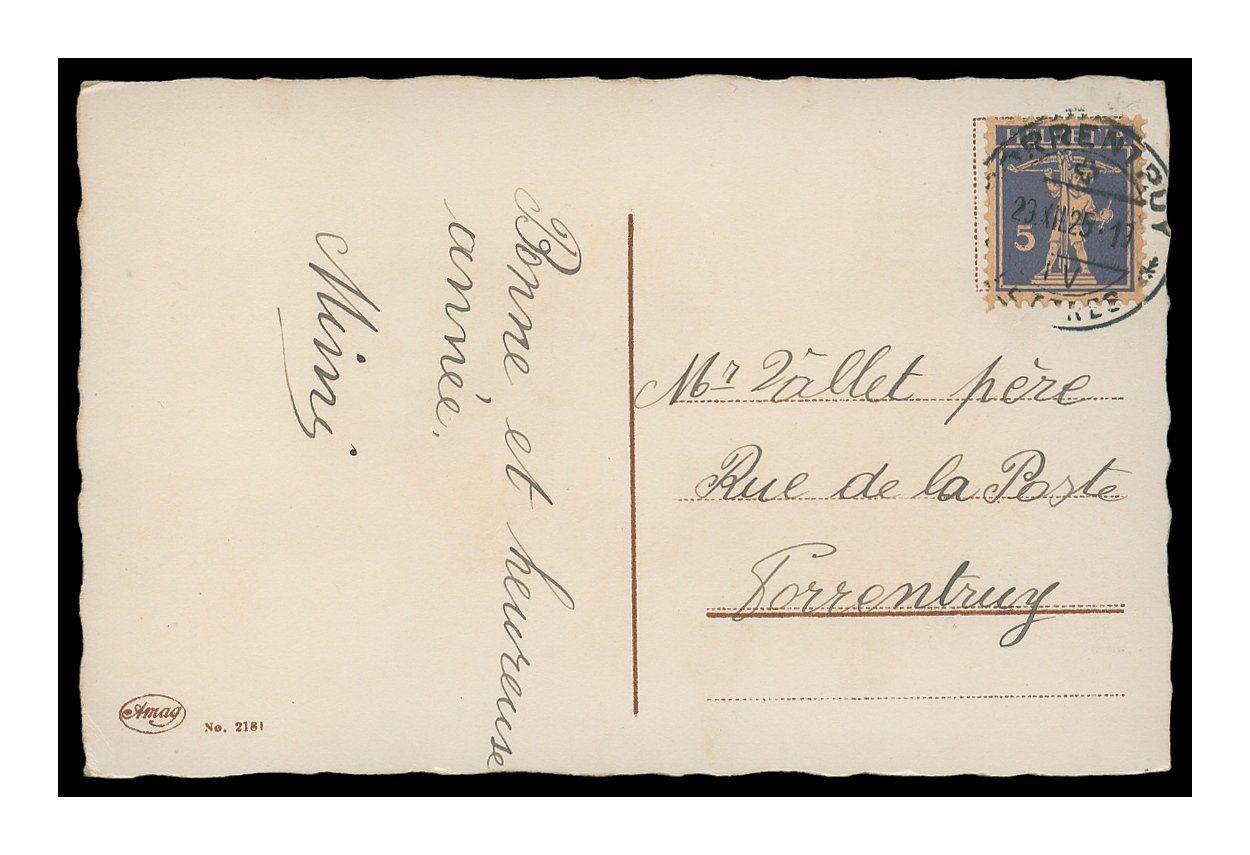 Bonne et heureuse
année.
Mimi
HELVETIA
5
PORRENTRUY
29.XII.25-19
LETTRES
Mr Vallet père
Rue de la Poste
Porrentruy
Amag
No. 2181